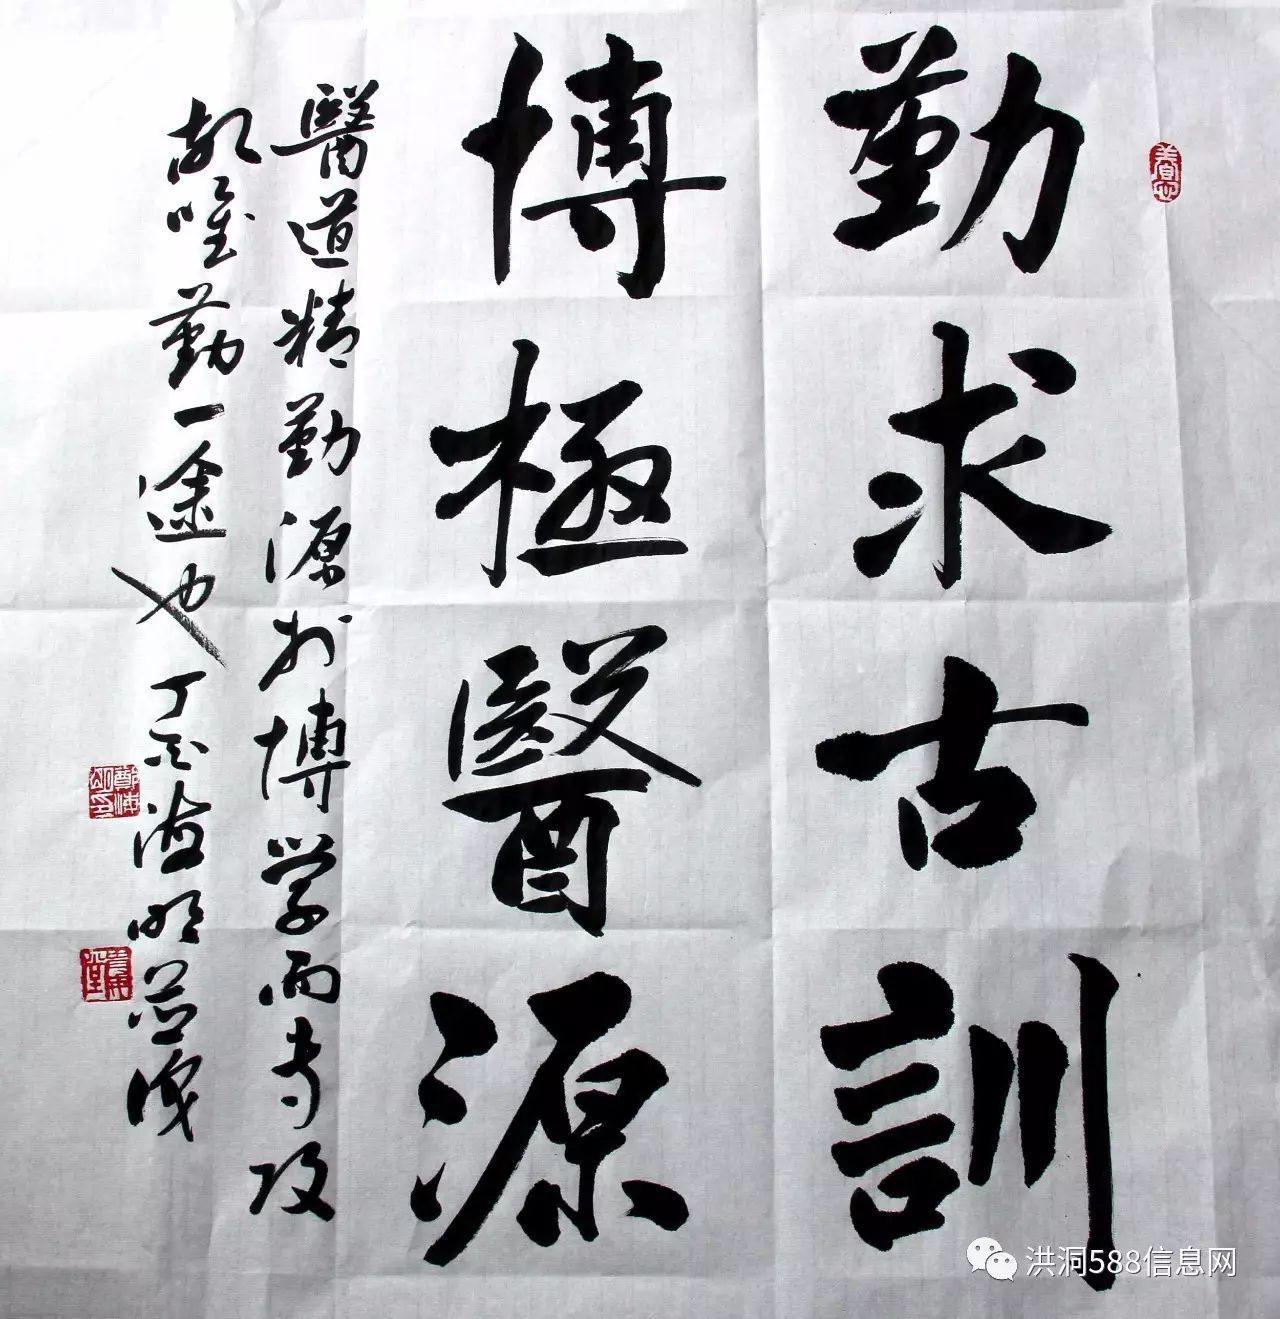 勤求古訓
博極醫源
醫道精勤源於博學而專攻
故唯勤一途也丁酉海明並識
洪洞588信息网